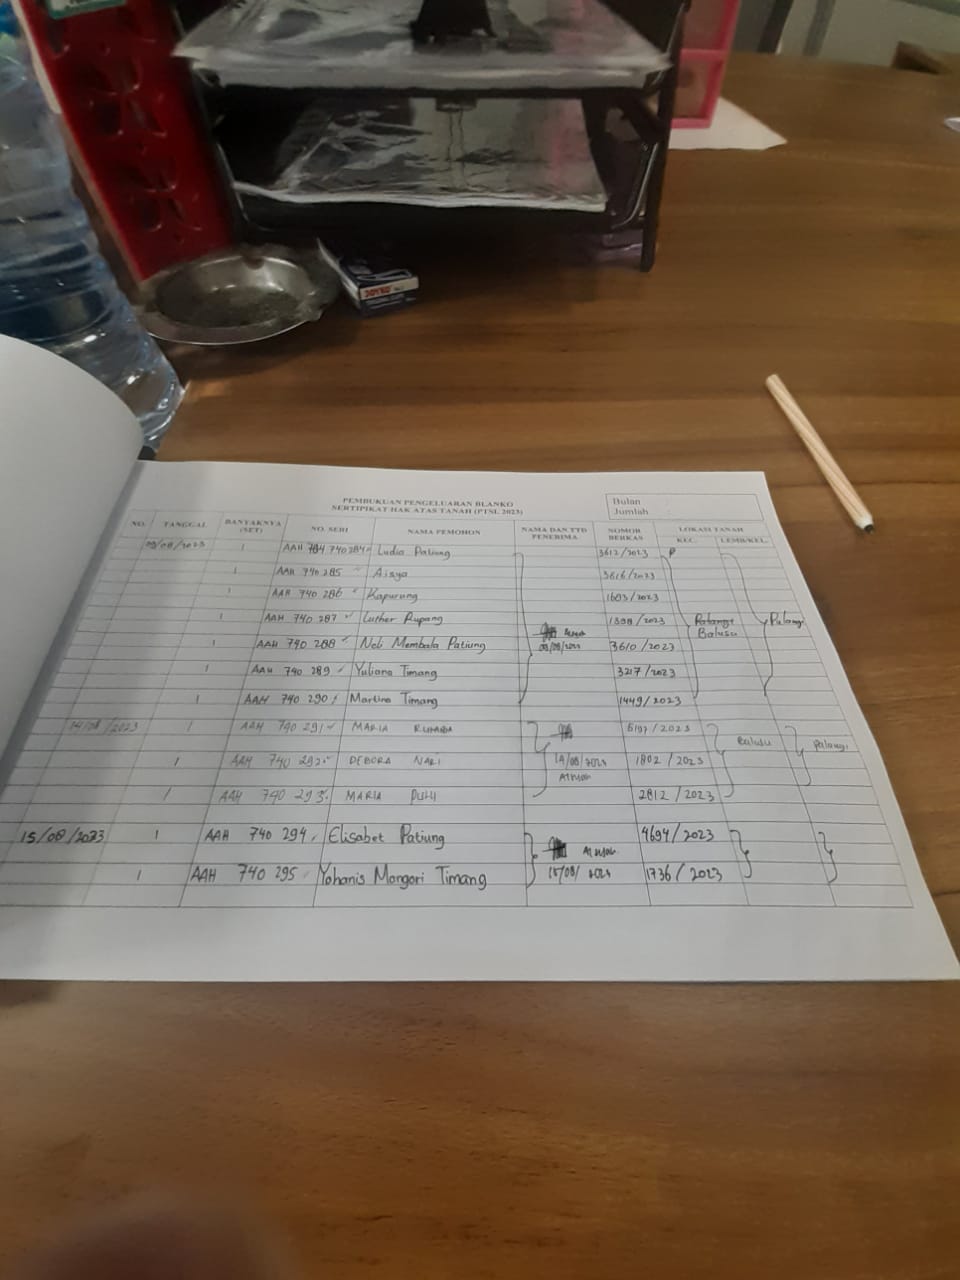 JOYKO
PEMBUKUAN PENGELUARAN BLANKO
SERTIPIKAT HAK ATAS TANAH (PTSL 2023)
Bulan :
Jumlah :
NO. TANGGAL BANYAKNYA (SET) NO. SERI NAMA PEMOHON NAMA DAN TTD PENERIMA NOMOR BERKAS LOKASI TANAH
KEC. LEMB/KEL.
09/08/2023 1 AAH 740284 Ludia Patiung 3612/2023 P
1 AAH 740 285 Aisya 3616/2023
1 AAH 740 286 Kapurung 1683/2023
1 AAH 740 287 Luther Rupang 1398/2023 Palangi
Balusu Palangi
1 AAH 740 288 Neli Membala Patiung 09/08/2023 3610/2023
1 AAH 740 289 Yuliana Timang 3217/2023
1 AAH 740 290 Martina Timang 1449/2023
14/08/2023 1 AAH 740 291 MARIA 5197/2023 Balusu Palangi
1 AAH 740 292 DEBORA 14/08/2023 1802/2023
1 AAH 740 293 MARIA 2812/2023
15/08/2023 1 AAH 740 294 Elisabet Patiung 4694/2023
1 AAH 740 295 Yohanis Mangori Timang 15/08/2023 1736/2023